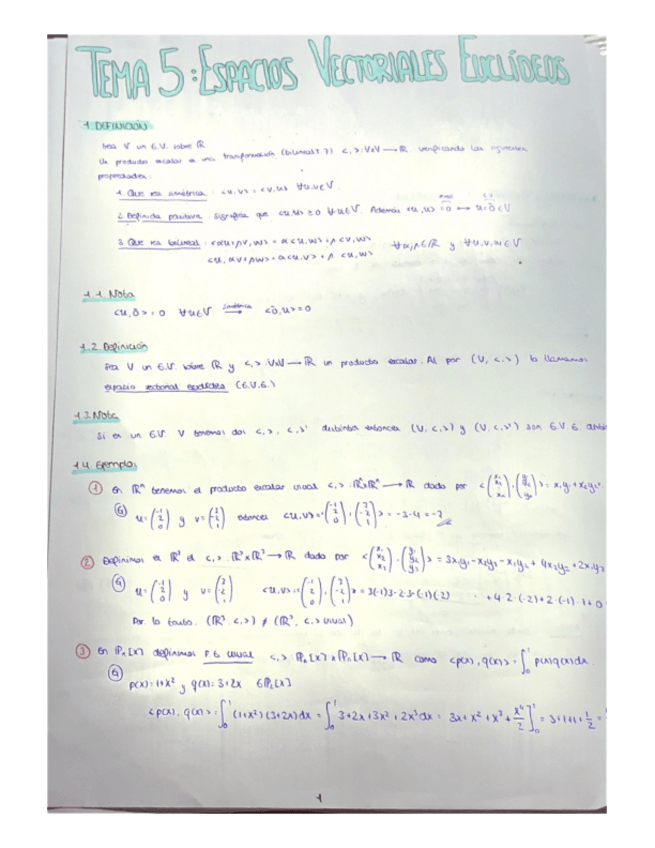 TEMA 5: ESPACIOS VECTORIALES EUCLÍDEOS
1. DEFINICIÓN
Sea V un E.V. sobre ℝ
Un producto escalar es una transformación (bilineal ) <,>: VxV → ℝ verificando las siguientes
propiedades:
1. Que sea simétrica: <u,v> = <v,u> ∀u,v∈V
2. Definida positiva: significa que <u,u> ≥ 0 ∀u∈V. Además <u,u> = 0 ↔ u = 0̄ ∈ V
3. Que sea bilineal: <αu+βv,w> = α<u,w> + β<v,w> ∀α,β∈ℝ y ∀u,v,w∈V
<u,αv+βw> = α<u,v> + β<u,w>
1.1. Nota
<u,0̄> = 0 ∀u∈V simétrica → <0̄,u> = 0
1.2 Definición
Sea V un E.V. sobre ℝ y <,>: VxV → ℝ un producto escalar. Al par (V, <,>) lo llamamos
espacio vectorial euclídeo (E.V.E.)
1.3. Nota
Si en un E.V. V tenemos dos <,>, <,>' distintos entonces (V,<,>) y (V,<,>') son E.V.E.
1.4. Ejemplos
① En ℝⁿ tenemos el producto escalar usual <,>: ℝⁿxℝⁿ → ℝ dado por = x₁y₁+x₂y₂+
Ej u = (-1 2 0) y v = (3 -2 1) entonces <u,v> = <(-1 2 0), (3 -2 1)> = -3-4 = -7
② Definimos en ℝ³ el <,>: ℝ³xℝ³ → ℝ dado por <(x₁ x₂ x₃), (y₁ y₂ y₃)> = 3x₁y₁-x₂y₁-x₁y₂+4x₂y₂+2x₃y₃
Ej u = (-1 2 0) y v = (3 -2 1) <u,v> = <(-1 2 0), (3 -2 1)> = 3(-1)3-2·3-(-1)(-2) +4·2·(-2)+2·(-1)·1+0
Por lo tanto, (ℝ³,<,>) ≠ (ℝ³,<,> usual)
③ En ℙₙ[x] definimos P.E. usual <,>: ℙₙ[x] x ℙₙ[x] → ℝ como <p(x),q(x)> = ∫₀¹ p(x)q(x)dx.
Ej
p(x) = 1+x² y q(x) = 3+2x ∈ℙ₂[x]
<p(x),q(x)> = ∫₀¹ (1+x²)(3+2x)dx = ∫₀¹ 3+2x+3x²+2x³dx = 3x+x²+x³+x⁴/2]₀¹ = 3+1+1+1/2 =
1